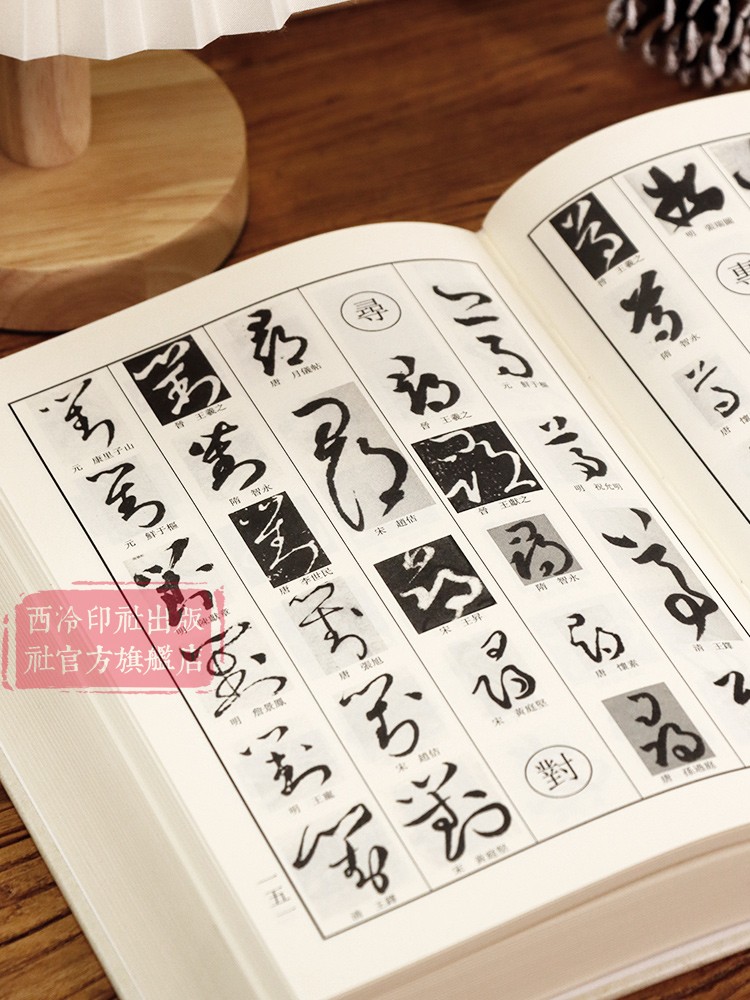 專
明 張瑞圖
晉 王羲之
隋 智永
元 鮮于樞
明 祝允明
清 王鐸
尋
晉 王羲之
晉 王獻之
隋 智永
唐 懷素
唐 孫過庭
唐 月儀帖
宋 趙佶
宋 王昇
宋 黃庭堅
對
晉 王羲之
隋 智永
唐 李世民
唐 張旭
宋 趙佶
宋 黃庭堅
元 康里子山
元 鮮于樞
明 陳獻章
明 詹景鳳
明 王寵
清 王鐸
一五一
西泠印社出版
社官方旗艦店